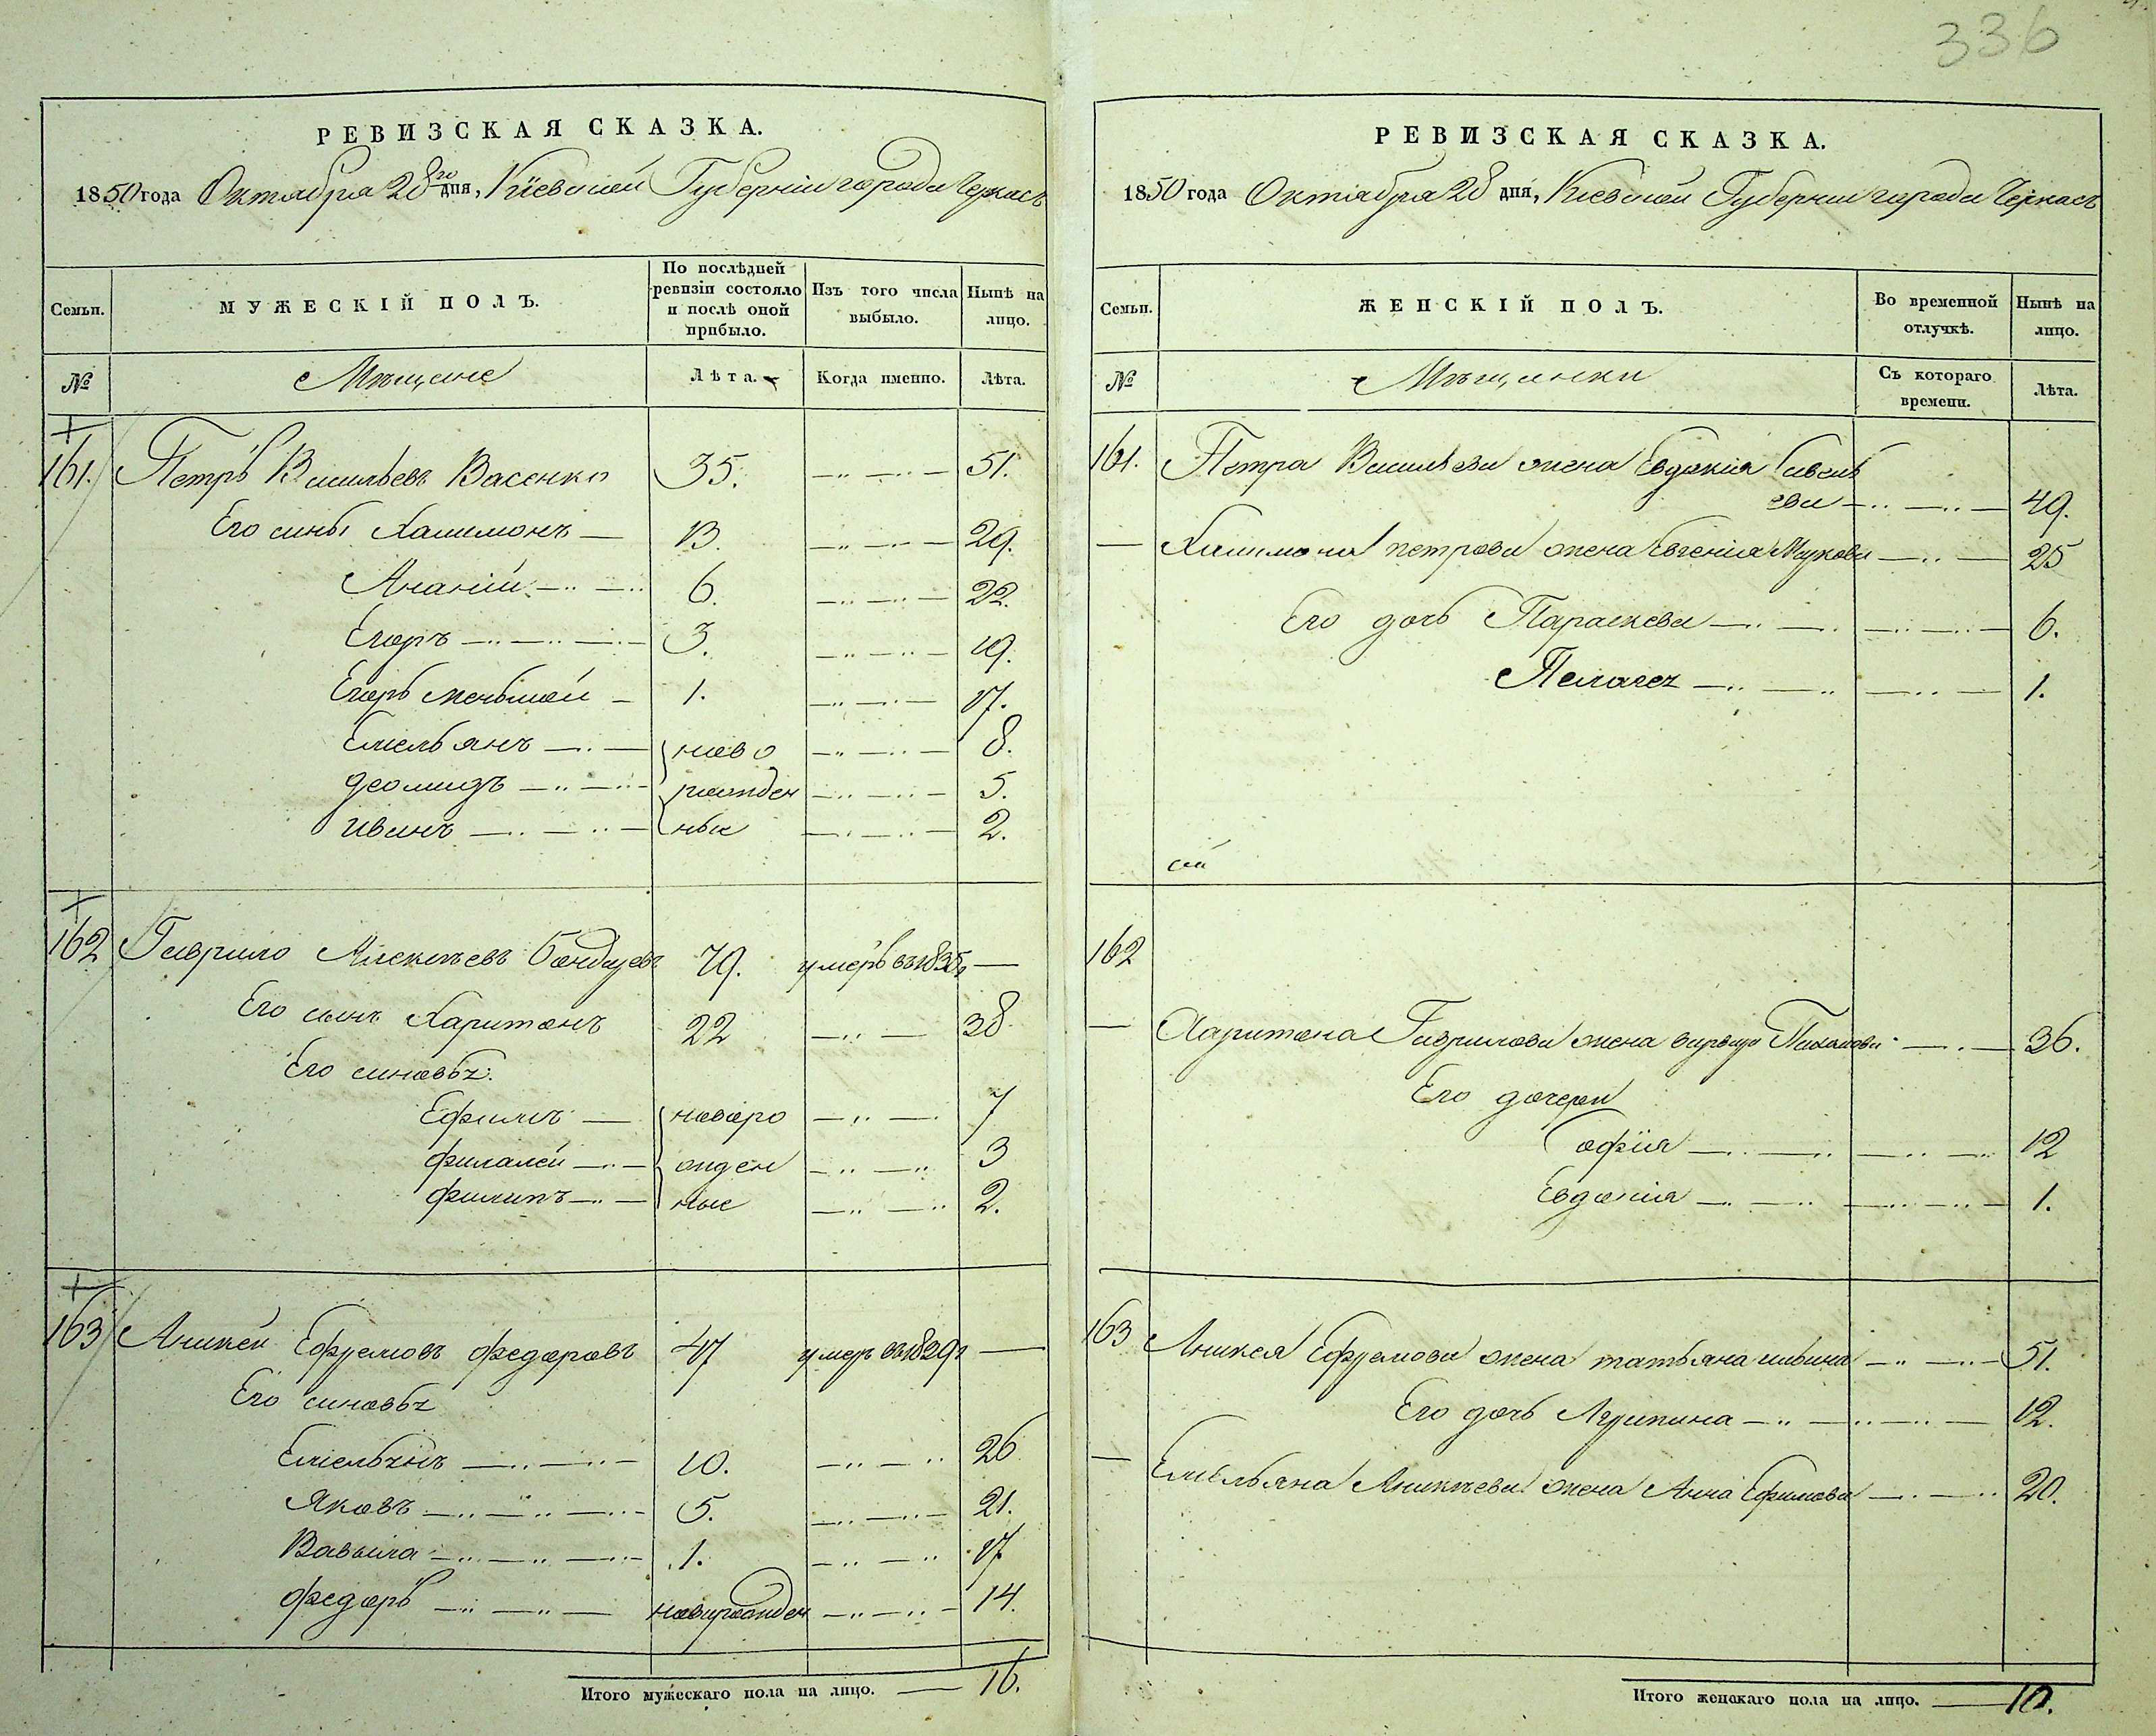 336
РЕВИЗСКАЯ СКАЗКА.
1850 года Октября 28го дня, Кіевской Губерніи города Черкасъ
Семьи. МУЖЕСКІЙ ПОЛЪ. По послѣдней ревизіи состояло и послѣ оной прибыло. Изъ того числа выбыло. Нынѣ на лицо.
№ Мѣщане Лѣта. Когда именно. Лѣта.
161. Петръ Васильевъ Васенко 35. 51.
Его сины Халимонъ 13. 29.
Ананій 6. 22.
Егоръ 3. 19.
Егоръ меньшой 1. 17.
Емельянъ ново 8.
Деомидъ рожден 5.
Иванъ ные 2.
162 Гаврило Алексѣевъ 79. умеръ въ 1835г
Его сынъ Харитонъ 22 38
Его синовья:
Ефимъ новоро 7
Филалей жден 3
Филипъ ные 2.
163 Аникей Ефремовъ Федоровъ 47 умеръ въ 1829г
Его синовья
Емельянъ 10. 26
Яковъ 5. 21.
Вавыла 1. 17
Федоръ новорожден 14.
Итого мужескаго пола на лицо. 16.
РЕВИЗСКАЯ СКАЗКА.
1850 года Октября 28 дня, Кіевской Губерніи города Черкасъ
Семьи. ЖЕНСКІЙ ПОЛЪ. Во временной отлучкѣ. Нынѣ на лицо.
№ Мѣщанки Съ котораго времени. Лѣта.
161. Петра Васильева жена Евдокія Савель
ева 49.
Халимона Петрова жена Евгенія 25
Его дочь Параскева 6.
Пелагея 1.
162
Харитона Гаврилова жена 36.
Его дочери
Софія 12
Евдокія 1.
163 Аникея Ефремова жена Татьяна Ильина 51.
Его дочь Агрипина 12.
Емельяна Аникѣева жена Анна Ефимова 20.
Итого женскаго пола на лицо. 10.